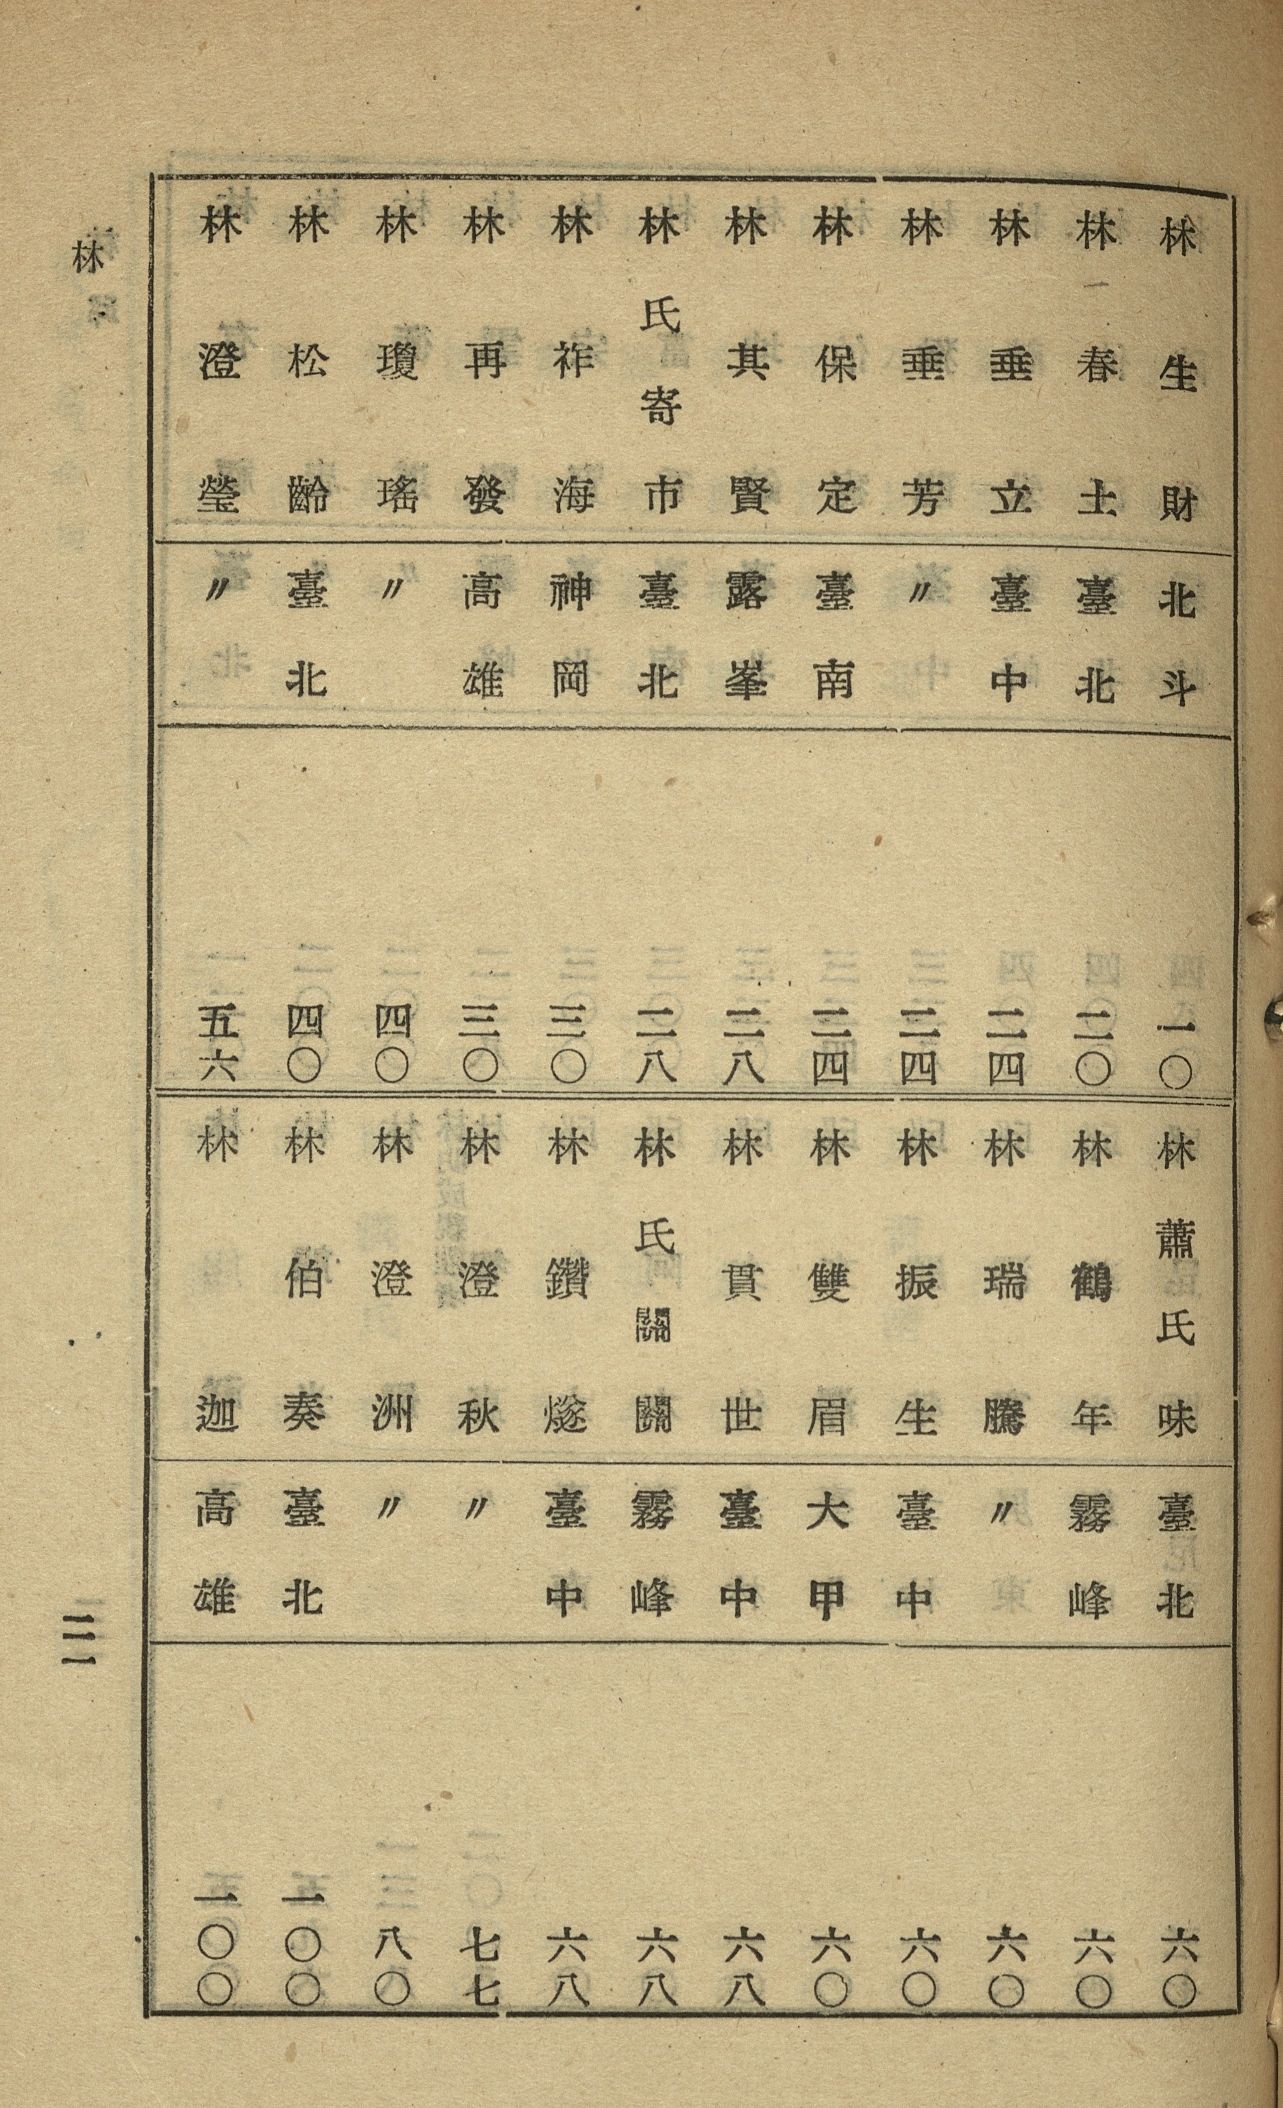 林生財 北斗 一〇
林春土 臺北 二〇
林垂立 臺中 二四
林垂芳 〃 二四
林保定 臺南 二四
林其賢 露峯 二八
林氏寄市 臺北 二八
林祚海 神岡 三〇
林再發 高雄 三〇
林瓊瑤 〃 四〇
林松齡 臺北 四〇
林澄瑩 〃 五六
林蕭氏味 臺北 六〇
林鶴年 霧峰 六〇
林瑞騰 〃 六〇
林振生 臺中 六〇
林雙眉 大甲 六〇
林貫世 臺中 六八
林氏關關 霧峰 六八
林鑽燧 臺中 六八
林澄秋 〃 七七
林澄洲 〃 八〇
林伯奏 臺北 一〇〇
林迦 高雄 一〇〇
林